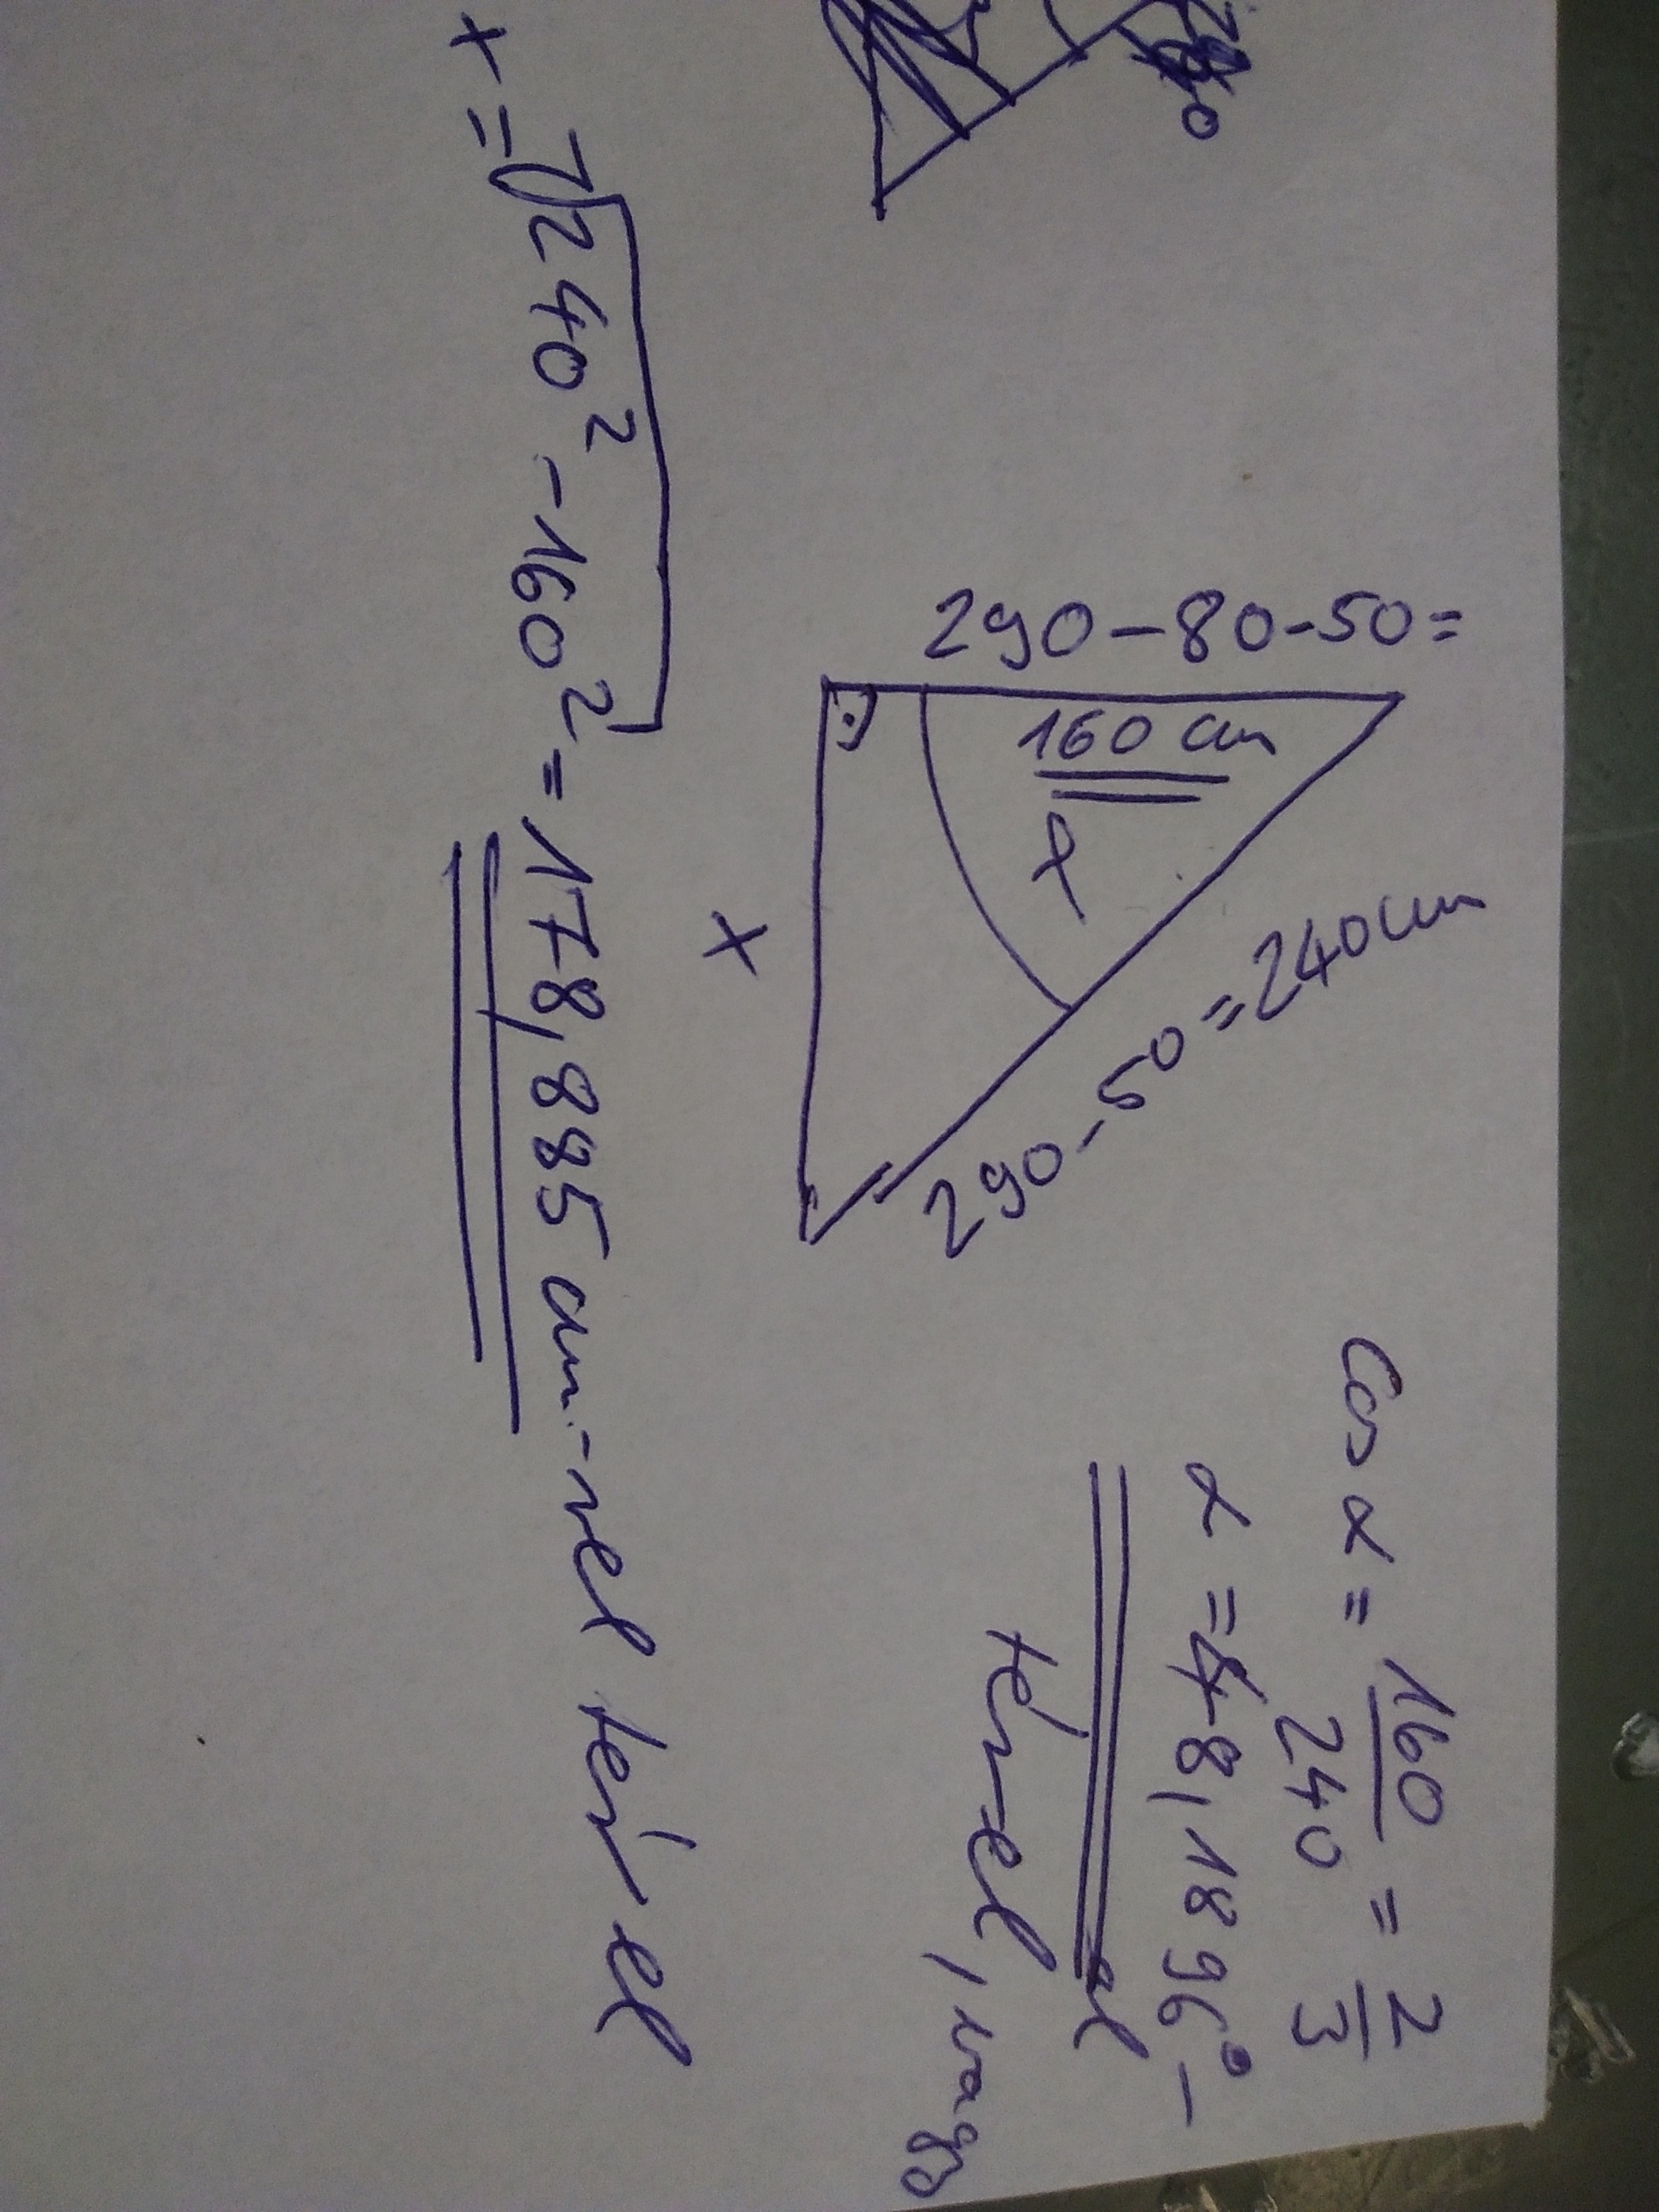 290-80-50=
160 cm
α
290-50=240cm
x
cos α = 160/240 = 2/3
α = 48,1896°-
el
tér el, vagy
x = √240² - 160² = 178,885 cm-rel tér el